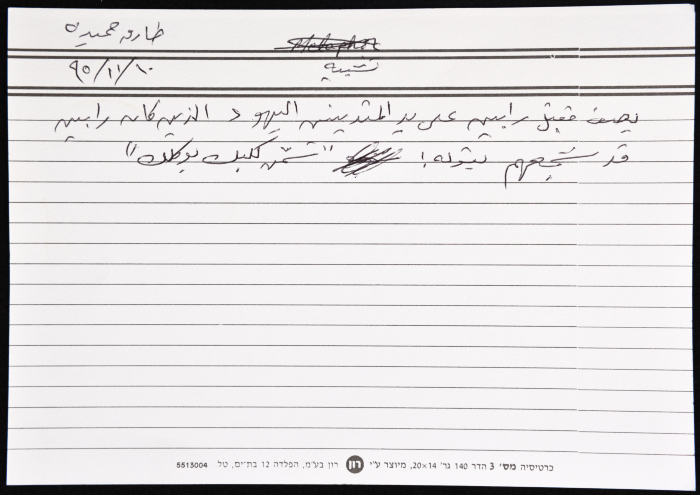 طارق حميدة
تشبيه
٩٥/١١/١٠
يصف مقتل رابين على يد المتدينين اليهود الذين كان رابين
قد شجعهم بقوله: "سمّن كلبك بوكلك"
כרטיסיה מס׳ 3 הדר 140 גר׳ 14×20, מיוצר ע״י רון רון בע״מ, הפלדה 12 בת־ים, טל 5513004